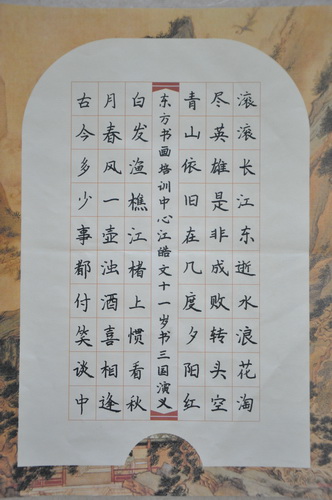 滚滚长江东逝水浪花淘
尽英雄是非成败转头空
青山依旧在几度夕阳红
东方书画培训中心江皓文十一岁书三国演义
白发渔樵江楮上惯看秋
月春风一壶浊酒喜相逢
古今多少事都付笑谈中